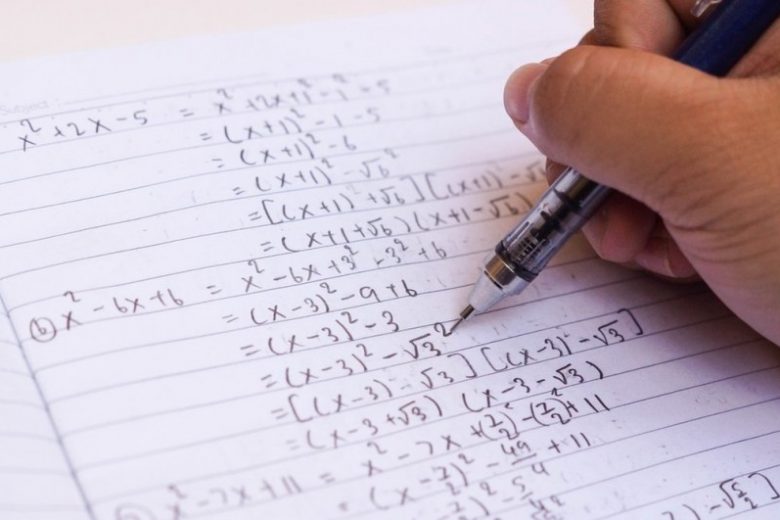 Subject
x² + 2x - 5 = x² + 2x + 1² - 1² - 5
= (x+1)² - 1 - 5
= (x+1)² - 6
= (x+1)² - √6²
= [(x+1) + √6] [(x+1) - √6
= (x+1+√6) (x+1-√6)
(b) x² - 6x + 6 = x² - 6x + 3² - 3² + 6
= (x-3)² - 9 + 6
= (x-3)² - 3
= (x-3)² - √3²
= [(x-3) - √3] [(x-3) - √3]
= (x-3+√3) (x-3-√3)
x² - 7x + 11 = x² - 7x + (7/2)² - (7/2)² + 11
= (x - 7/2)² - 49/4 + 11